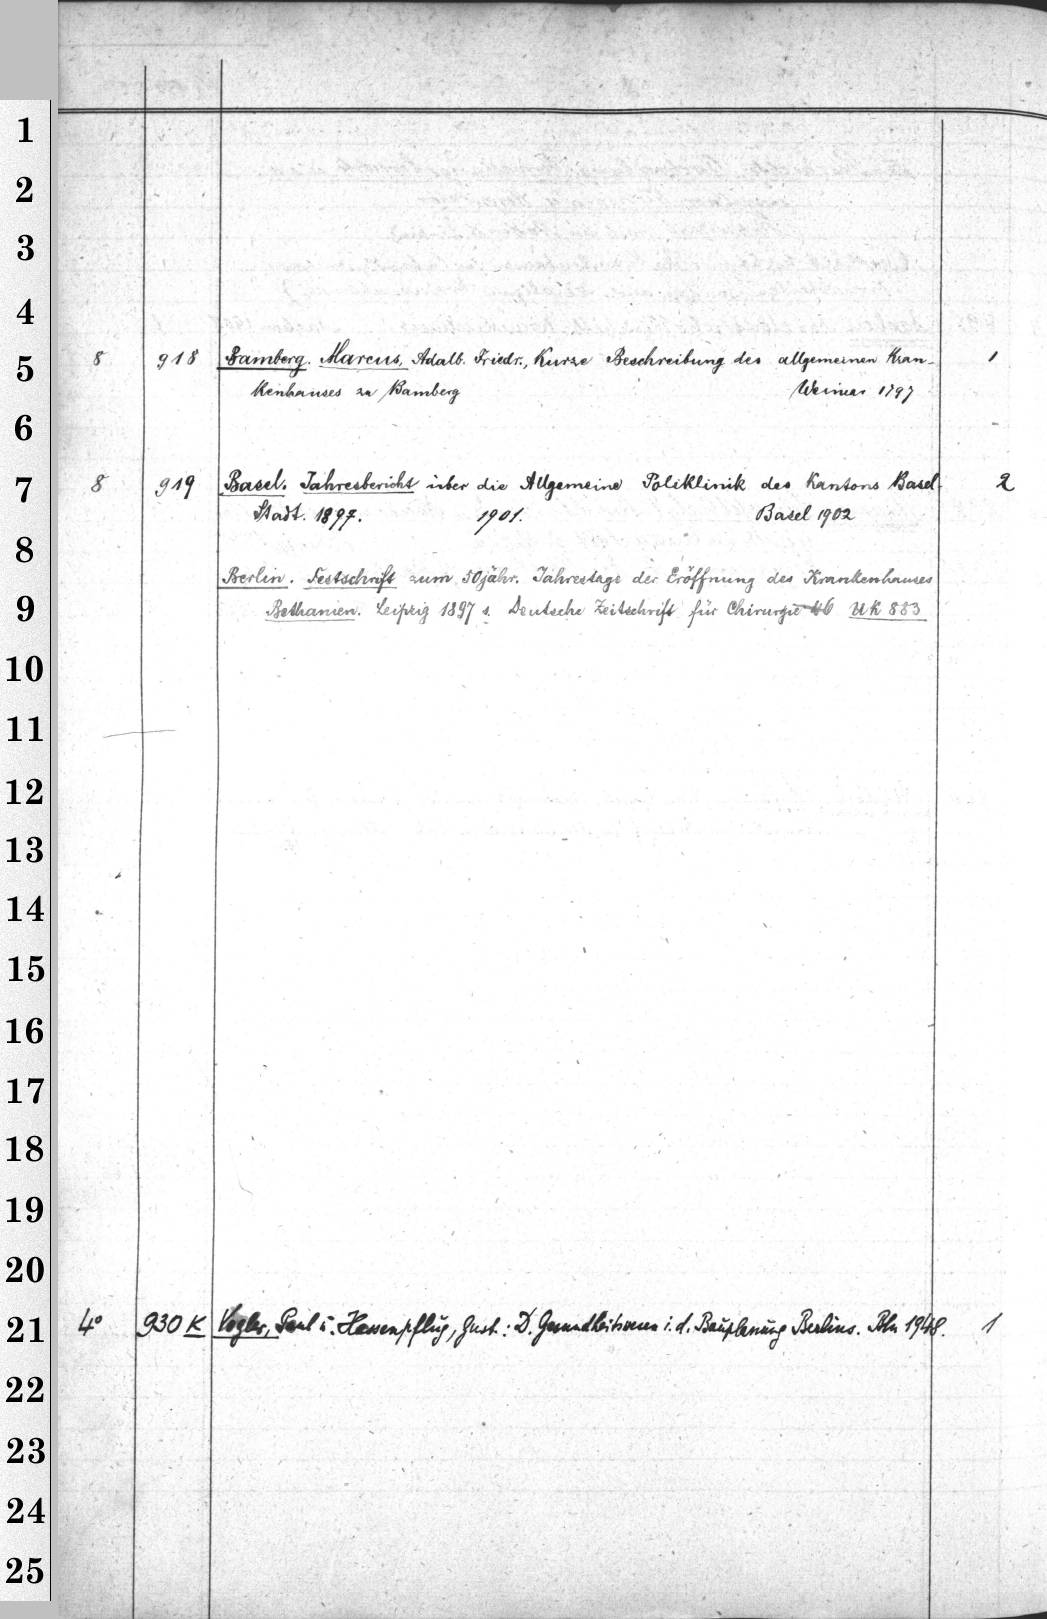 1
2
3
4
8 918 Bamberg. Marcus, Adalb. Friedr., Kurze Beschreibung des allgemeinen Kran- 1
5
kenhauses zu Bamberg Weimar 1797
6
8 919 Basel. Jahresbericht über die Allgemeine Poliklinik des Kantons Basel- 2
7
Stadt. 1897. 1901. Basel 1902
8
Berlin. Festschrift zum 50jähr. Jahrestage der Eröffnung des Krankenhauses
9
Bethanien. Leipzig 1897 s. Deutsche Zeitschrift für Chirurgie 46 UK 883
10
11
12
13
14
15
16
17
18
19
20
21
4° 930 K Vogler, Paul u. Hassenpflug, Gust.: D. Grundleitideen i. d. Bauplanung Berlins. Bln 1948. 1
22
23
24
25